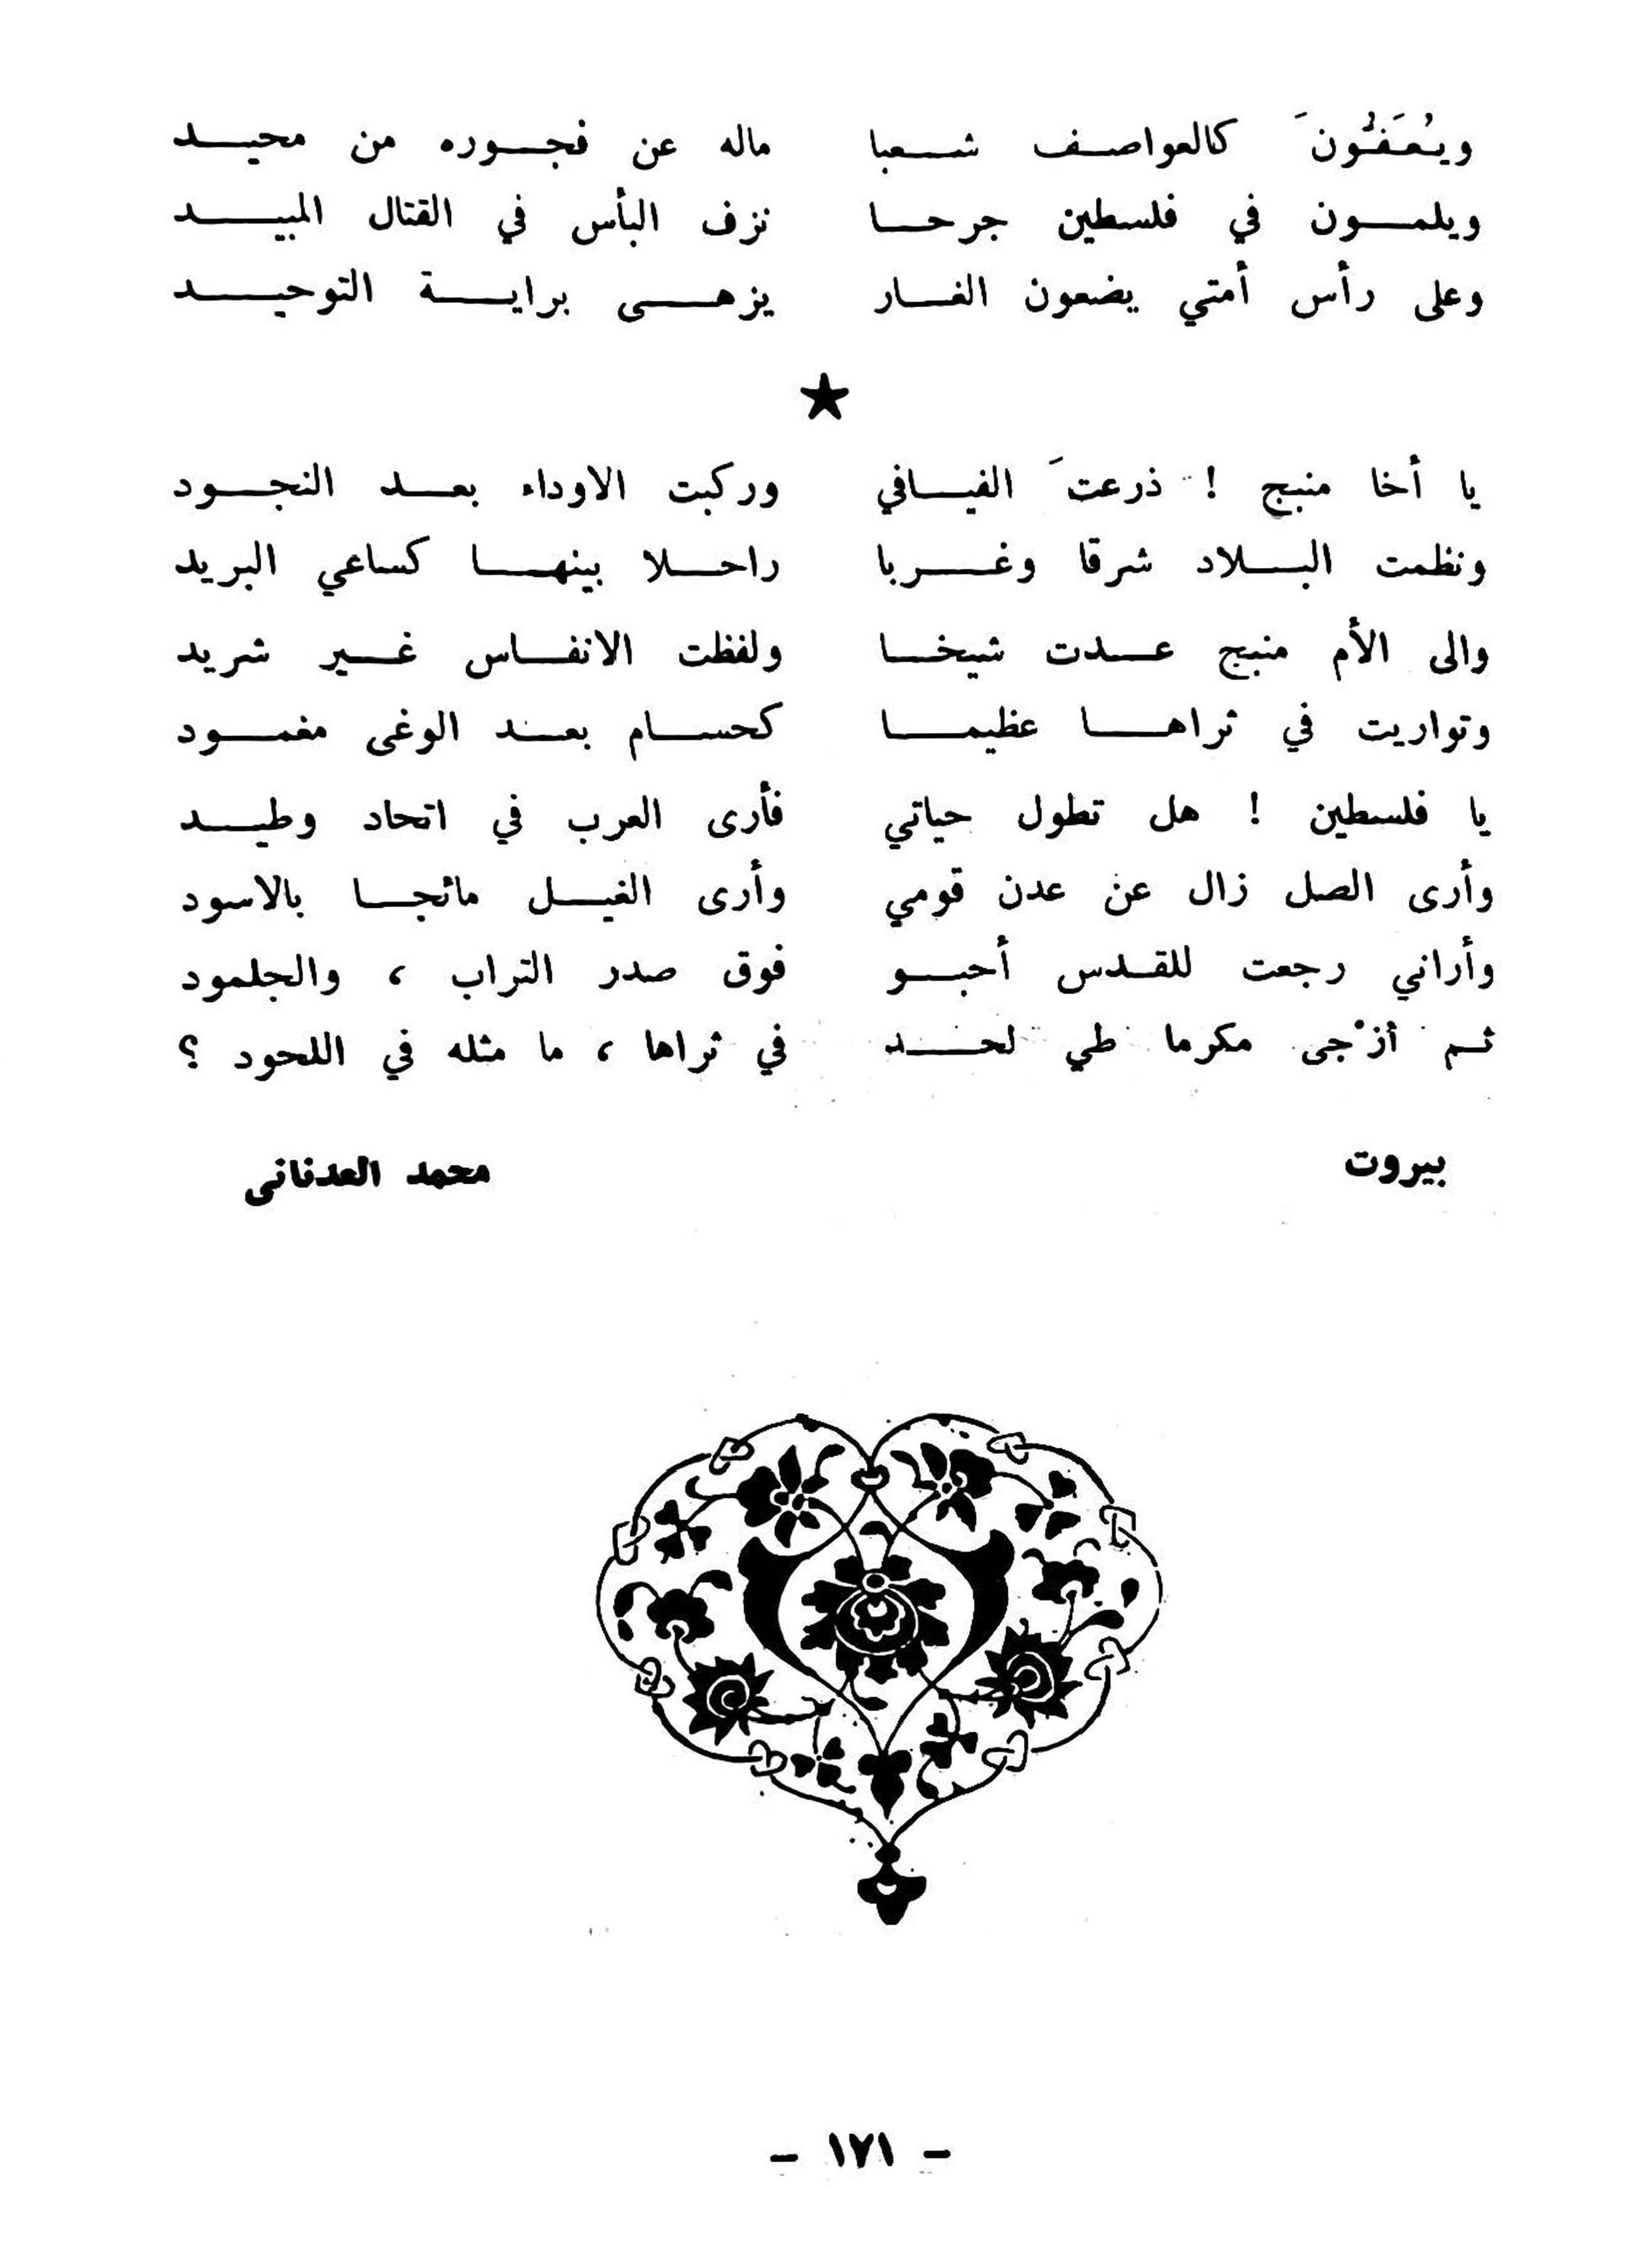 ويُعَفُّونَ كالعواصف شعبا ماله عن فجوره من محيد
ويلمون في فلسطين جرحا نزف البأس في القتال المبيد
وعلى رأس أمتي يضعون الغار يزهى براية التوحيد
★
يا أخا منبج ! ذرعتَ الفيافي وركبت الاوداء بعد النجود
ونظمت البلاد شرقا وغربا راحلا بينها كساعي البريد
والى الأم منبج عدت شيخا ولفظت الانفاس غير شريد
وتواريت في ثراها عظيما كحسام بعد الوغى مغمود
يا فلسطين ! هل تطول حياتي فأرى العرب في اتحاد وطيد
وأرى الصل زال عن عدن قومي وأرى الغيل مائجا بالاسود
وأراني رجعت للقدس أحبو فوق صدر التراب ، والجلمود
ثم أزْجى مكرما طي لحد في ثراها ، ما مثله في اللحود ؟
بيروت محمد العدنانى
- ١٧١ -